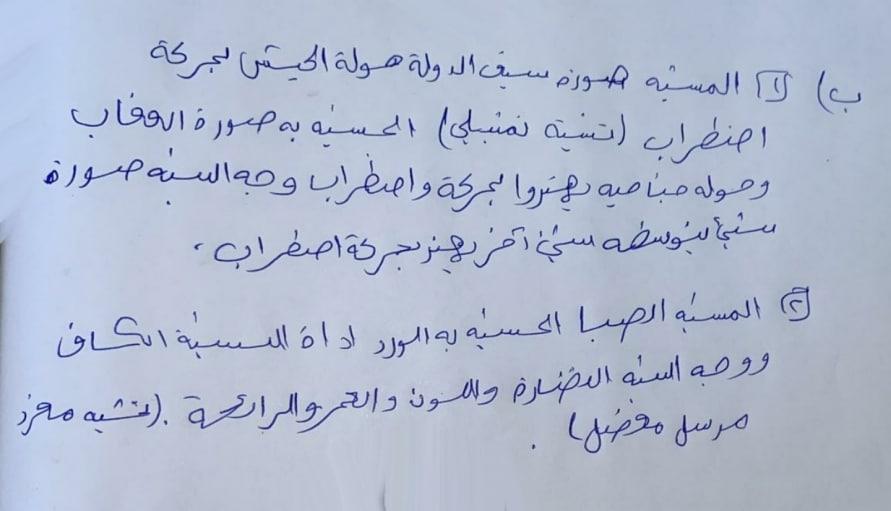 ب) ١ المشبه صورة سيف الدولة حوله الجيش بحركة
اضطراب (تشبيه تمثيلي) المشبه به صورة العقاب
وحوله جناحيه يهتزوا بحركة واضطراب وجه الشبه صورة
شيئ يتوسطه شيئ آخر يهتز بحركة اضطراب .
٢ المشبه الصبا المشبه به الورد اداة التشبيه الكاف
ووجه الشبه النضارة واللون والعمر والرائحة . (تشبيه مفرد
مرسل مفصل) .